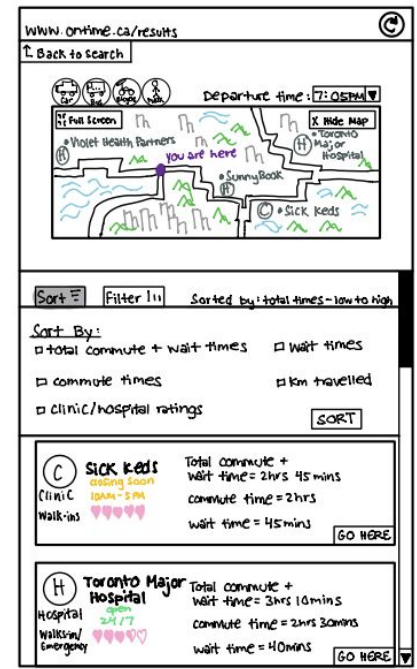 www.ontime.ca/results
Back to search
Car Bus Bicycle
Departure time: 7:05PM
Full Screen
X Hide Map
Violet Health Partners
H
you are here
H
Toronto
Major
Hospital
SunnyBook
H
C
Sick Keds
Sort
Filter
Sorted by: total times - low to high
Sort By:
total commute + wait times
wait times
commute times
km travelled
clinic/hospital ratings
SORT
C
Clinic
Walk-ins
Sick Keds
closing soon
10AM - 5PM
Total commute +
wait time = 2hrs 45 mins
commute time = 2hrs
wait time = 45mins
GO HERE
H
Hospital
Walksin/
Emergency
Toronto Major
Hospital
open
24/7
Total commute +
wait time = 3hrs 10mins
commute time = 2hrs 30mins
wait time = 40mins
GO HERE